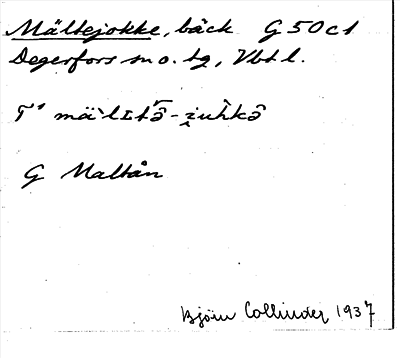 Mältejokke, bäck G 50 c1
Degerfors sn o. tg, Vbt l.
G Maltån
Björn Collinder 1937